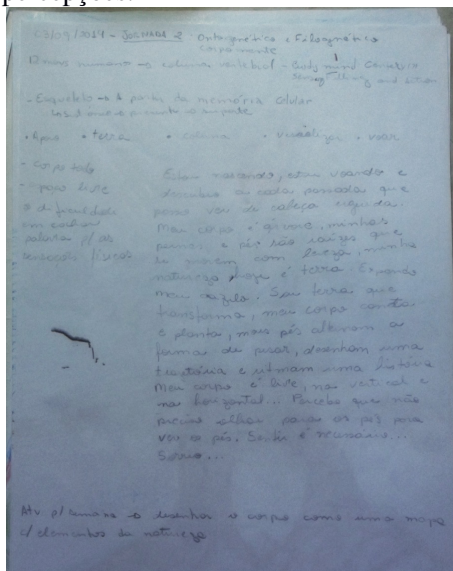 percepções.
03/09/2014 - JORNADA 2 Ontogenético e Filogenético
corpo mente
coluna vertebral - Body mind
and action
- Esqueleto → A partir da memória celular
o suporte
• Apoio • terra • coluna • visualizar • voar
- Corpo todo
- papo livre
→ dificuldade
em
palavra p/ as
sensações físicas
Estou voando e
descubro a cada passada que
posso ver de cabeça erguida.
Meu corpo é árvore, minhas
pernas e pés são raízes que
se movem com leveza, minha
natureza hoje é terra. Expando
meu Sou terra que
transforma, meu corpo canta
e planta, meus pés alternam a
forma de pisar, desenham uma
trajetória e ritmam uma história
Meu corpo é livre, na vertical e
na horizontal... Percebo que não
preciso olhar para os pés para
ver os pés. Sentir é necessário...
Sorrio...
Atv p/ amanhã → desenhar o corpo como uma mapa
c/ elementos da natureza